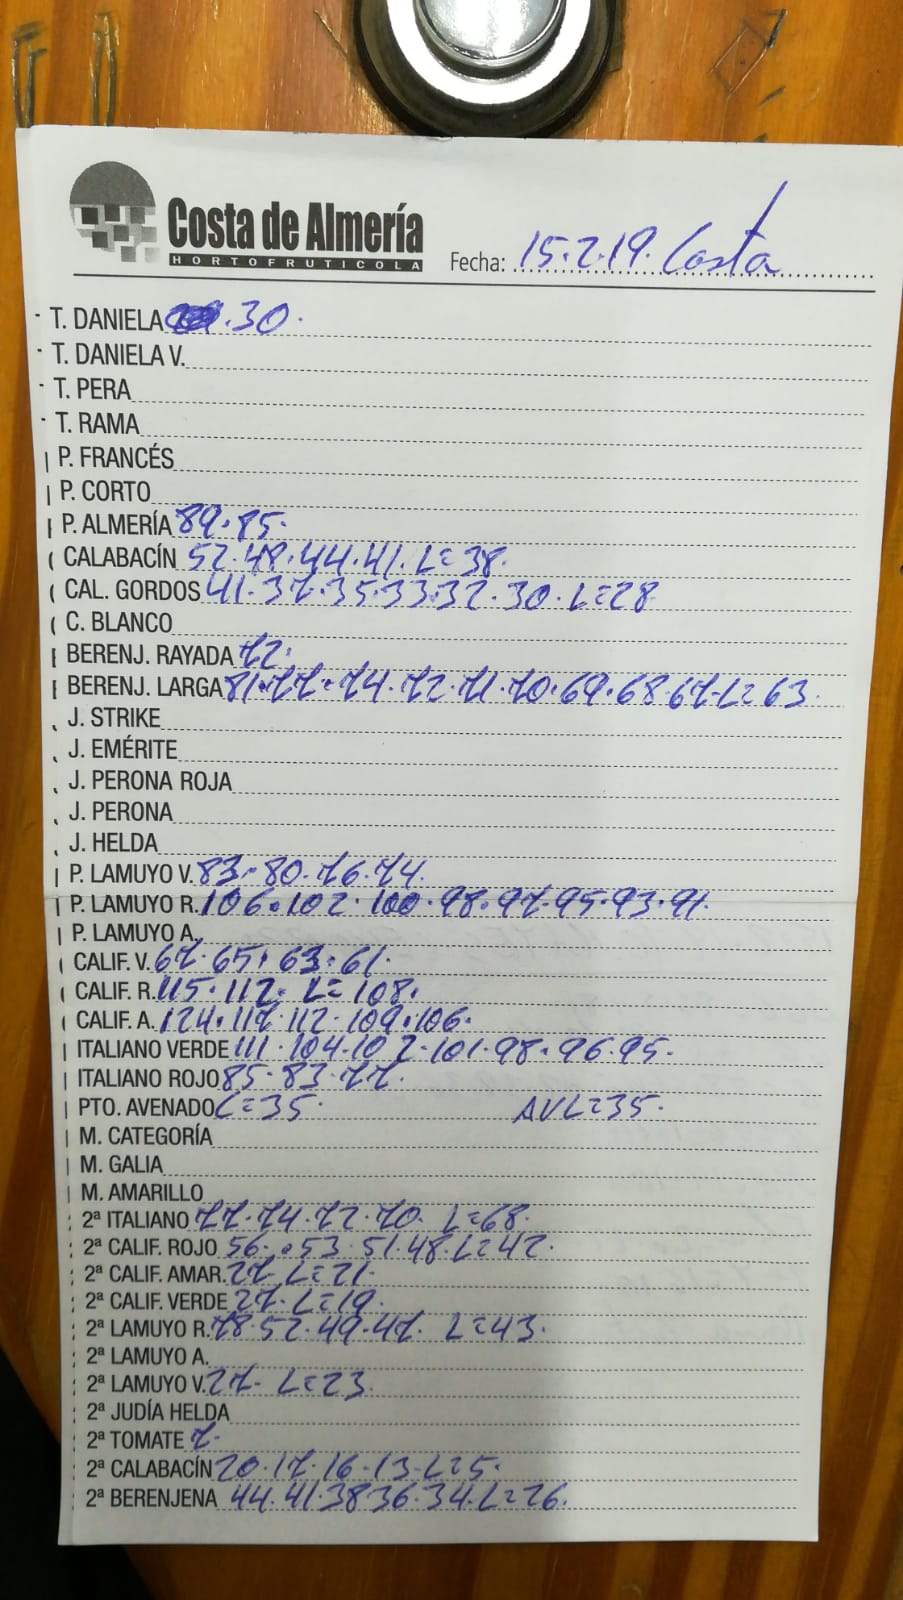 Costa de Almería
HORTOFRUTICOLA
Fecha: 15.2.19. Costa
T. DANIELA .30.
T. DANIELA V.
T. PERA
T. RAMA
P. FRANCÉS
P. CORTO
P. ALMERÍA 89.85.
CALABACÍN 52.48.44.41. L=38.
CAL. GORDOS 41.37.35.33.32.30. L=28
C. BLANCO
BERENJ. RAYADA 72.
BERENJ. LARGA 81.77.74.72.71.70.69.68.67.L=63.
J. STRIKE
J. EMÉRITE
J. PERONA ROJA
J. PERONA
J. HELDA
P. LAMUYO V. 83.80.76.74.
P. LAMUYO R. 106.102.100.98.97.95.93.91.
P. LAMUYO A.
CALIF. V. 67.65.63.61.
CALIF. R. 115.112. L=108.
CALIF. A. 124.117.112.109.106.
ITALIANO VERDE 111.104.102.101.98.96.95.
ITALIANO ROJO 85.83.77.
PTO. AVENADO L=35. AVL=35.
M. CATEGORÍA
M. GALIA
M. AMARILLO
2ª ITALIANO 77.74.72.70. L=68.
2ª CALIF. ROJO 56..53.51.48.L=42.
2ª CALIF. AMAR. 27. L=21.
2ª CALIF. VERDE 27. L=19.
2ª LAMUYO R. 78.52.49.47. L=43.
2ª LAMUYO A.
2ª LAMUYO V. 27. L=23
2ª JUDÍA HELDA
2ª TOMATE 7.
2ª CALABACÍN 20.17.16.13.L=5.
2ª BERENJENA 44.41.38 36.34.L=26.